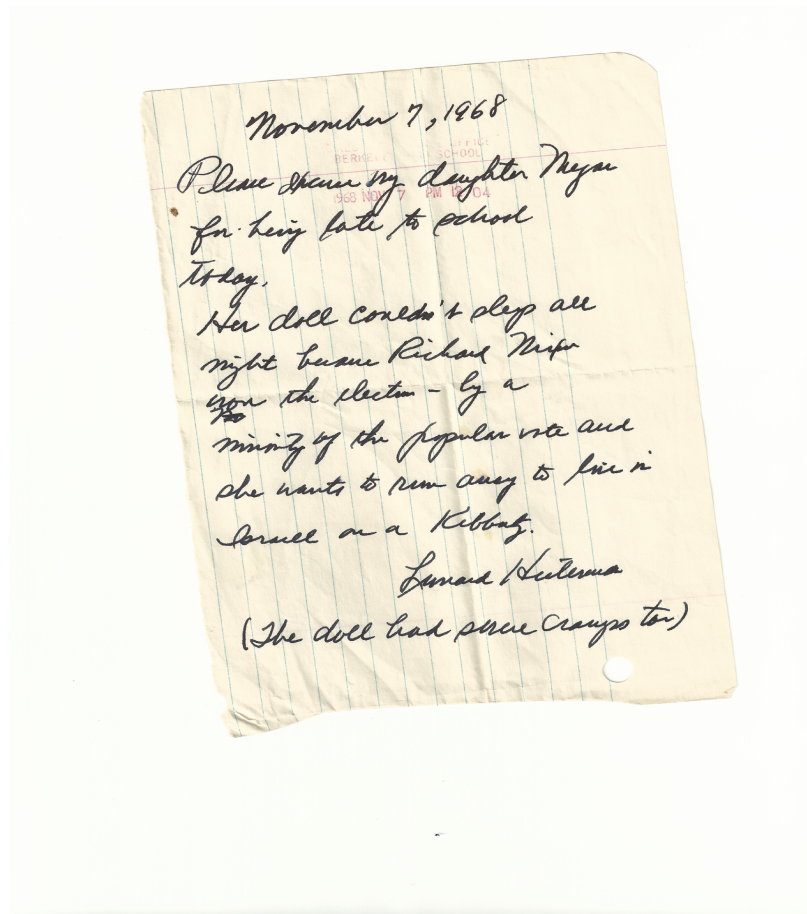 November 7, 1968
OFFICE
BERKE SCHOOL
Please excuse my daughter Megan
1968 NOV 7 PM 12 04
for being late to school
today.
Her doll couldn't sleep all
night because Richard Nixon
won the election - by a
minority of the popular vote and
she wants to run away to live in
Israel on a Kibbutz.
Leonard
(The doll had severe cramps too)